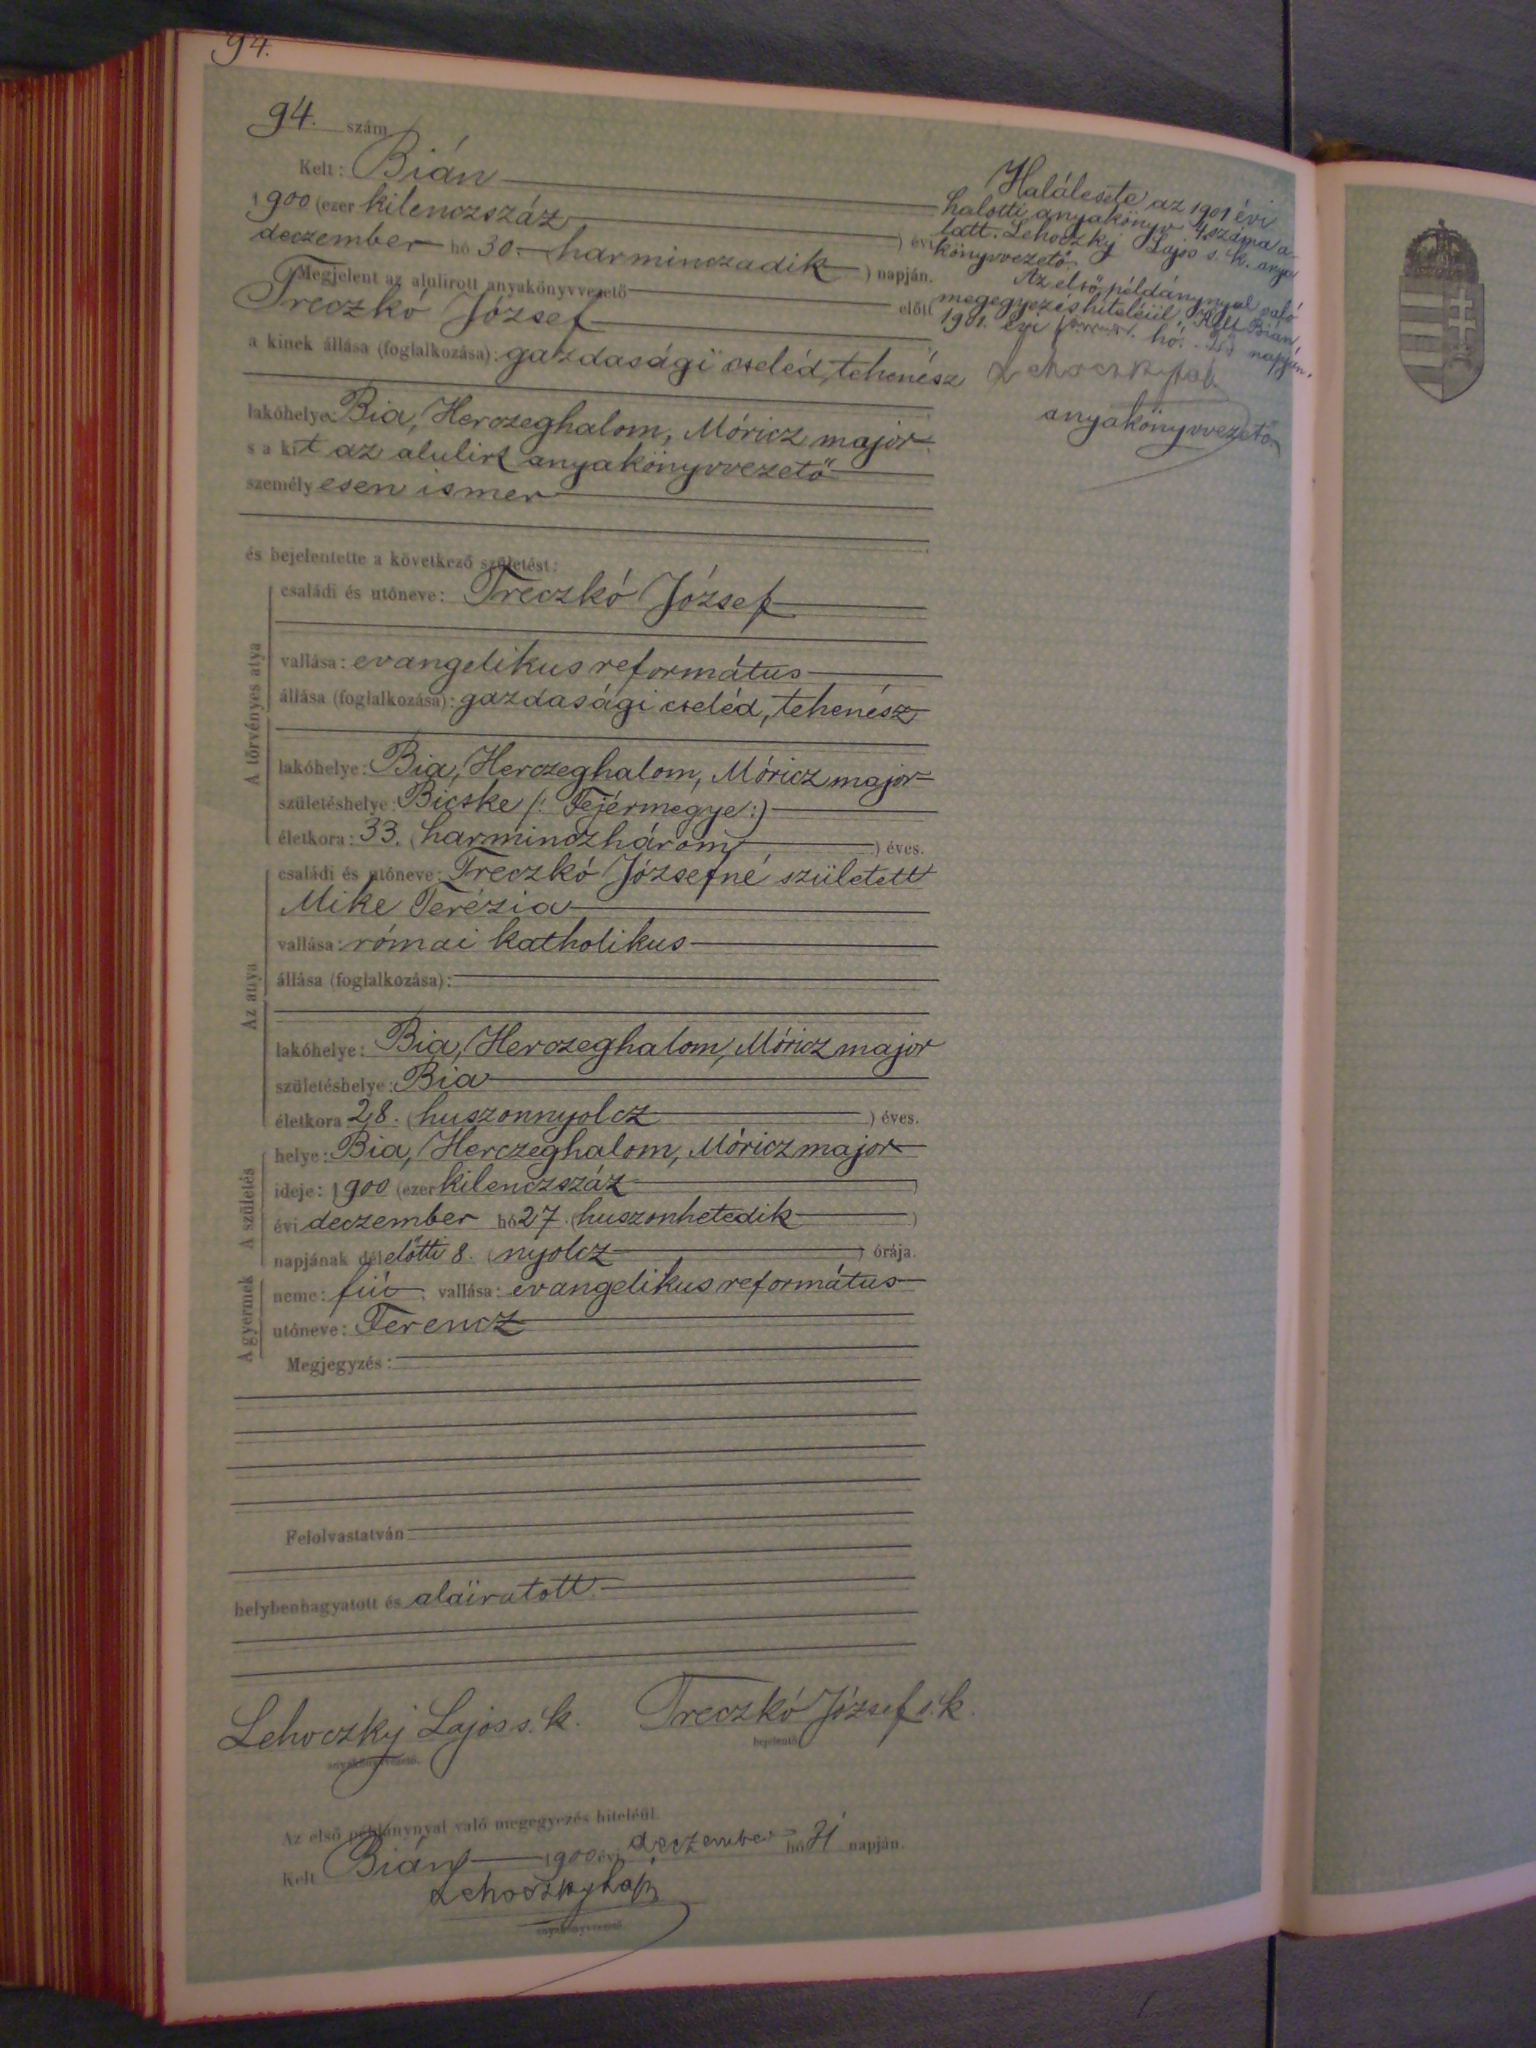 94.
94. szám
Kelt: Bián
1900 (ezer kilenczszáz) évi
deczember hó 30. harminczadik) napján.
Megjelent az alulirott anyakönyvvezető előtt
Treczkó József
a kinek állása (foglalkozása): gazdasági cseléd, tehenész
lakóhelye: Bia, Herczeghalom, Móricz major
s a kit az alulirt anyakönyvvezető
személyesen ismer
és bejelentette a következő születést:
A törvényes atya
családi és utóneve: Treczkó József
vallása: evangelikus református
állása (foglalkozása): gazdasági cseléd, tehenész
lakóhelye: Bia, Herczeghalom, Móricz major
születéshelye: Bicske (: Fejérmegye :)
életkora: 33. (harminczhárom) éves.
Az anya
családi és utóneve: Treczkó Józsefné született
Mike Terézia
vallása: római katholikus
állása (foglalkozása):
lakóhelye: Bia, Herczeghalom, Móricz major
születéshelye: Bia
életkora 28. (huszonnyolcz) éves.
A születés
helye: Bia, Herczeghalom, Móricz major
ideje: 1900 (ezer kilenczszáz)
évi deczember hó 27 (huszonhetedik)
napjának délelőtti 8. (nyolcz) órája.
A gyermek
neme: fiú; vallása: evangelikus református
utóneve: Ferencz
Megjegyzés:
Felolvastatván
helybenhagyatott és aláiratott.
Lehoczky Lajos s. k. Treczkó József s. k.
anyakönyvvezető. bejelentő
Az első példánynyal való megegyezés hiteléül.
Kelt Bián 1900 évi deczember hó 31 napján.
Lehoczky Lajos
anyakönyvvezető
Halálesete az 1901 évi
halotti anyakönyv száma a-
latt. Lehoczky Lajos s. k. anya
könyvvezető.
Az első példánynyal való
megegyezés hiteléül Kelt Bián,
1901. évi hó. napján.
Lehoczky
anyakönyvvezető